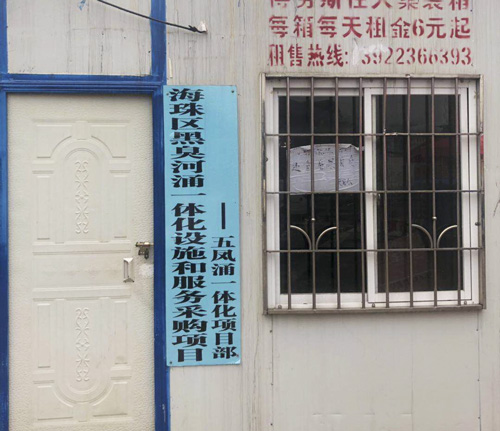 得劳斯住人集装箱
每箱每天租金6元起
租售热线:13922366393
海珠区黑臭河涌一体化设施和服务采购项目
——五凤涌一体化项目部